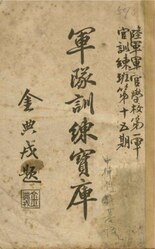 陸軍軍官學校第一軍
官訓練班第十五期
軍隊訓練寶庫
金典戎題